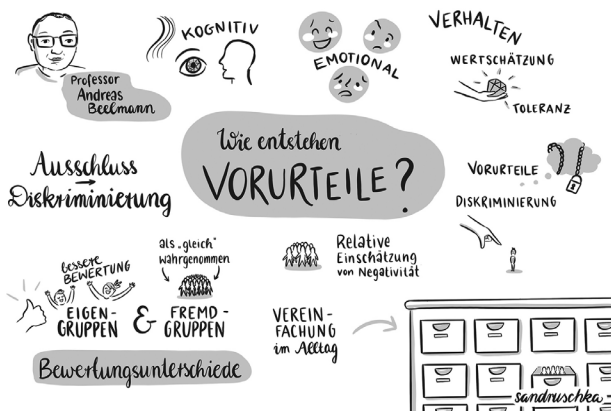 Professor
Andreas
Beelmann
KOGNITIV
EMOTIONAL
VERHALTEN
WERTSCHÄTZUNG
TOLERANZ
Wie entstehen
VORURTEILE?
Ausschluss
→
Diskriminierung
VORURTEILE
DISKRIMINIERUNG
bessere
BEWERTUNG
als „gleich"
wahrgenommen
EIGEN-
GRUPPEN
&
FREMD-
GRUPPEN
Bewertungsunterschiede
Relative
Einschätzung
von Negativität
VEREIN-
FACHUNG
im Alltag
sandruschka